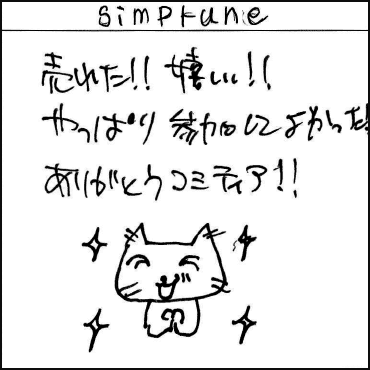 simptune
売れた!! 嬉しい!!
やっぱり参加してよかった!
ありがとうコミティア!!